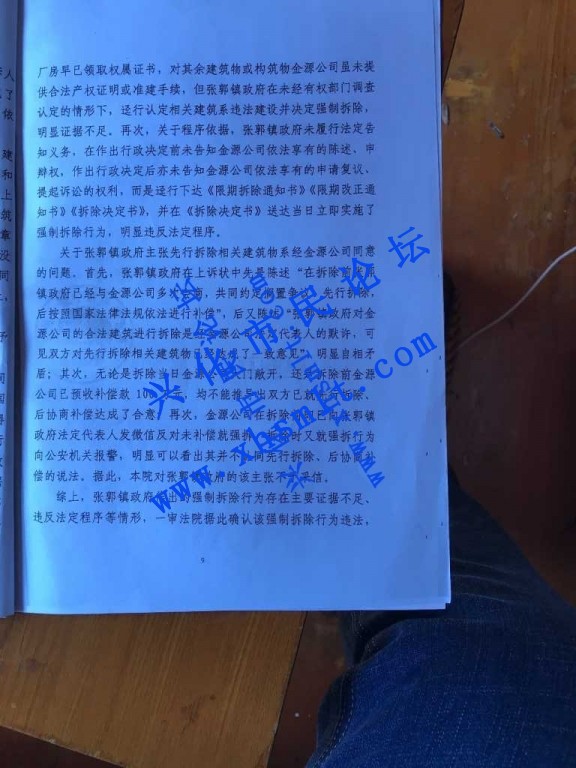 厂房早已领取权属证书，对其余建筑物或构筑物金源公司虽未提
供合法产权证明或准建手续，但张郭镇政府在未经有权部门调查
认定的情形下，迳行认定相关建筑系违法建设并决定强制拆除，
明显证据不足。再次，关于程序依据，张郭镇政府未履行法定告
知义务，在作出行政决定前未告知金源公司依法享有的陈述、申
辩权，作出行政决定后亦未告知金源公司依法享有的申请复议、
提起诉讼的权利，而是迳行下达《限期拆除通知书》《限期改正通
知书》《拆除决定书》，并在《拆除决定书》送达当日立即实施了
强制拆除行为，明显违反法定程序。
关于张郭镇政府主张先行拆除相关建筑物系经金源公司同意
的问题。首先，张郭镇政府在上诉状中先是陈述“在拆除前张郭
镇政府已经与金源公司多次 商，共同约定搁置争议，先行拆除，
后按照国家法律法规依法进行补偿”，后又陈述“张郭镇政府对金
源公司的合法建筑进行拆除是经金源公司法定代表人的默许，可
见双方对先行拆除相关建筑物已经达成了一致意见”，明显自相矛
盾；其次，无论是拆除当日金源公司大门敞开，还是拆除前金源
公司已预收补偿款 100 元，均不能推导出双方已就先行拆除、
后协商补偿达成了合意；再次，金源公司在拆除前现已向张郭镇
政府法定代表人发微信反对未补偿就强拆，拆除时又就强拆行为
向公安机关报警，明显可以看出其并不认同先行拆除、后协商补
偿的说法。据此，本院对张郭镇政府的该主张不予采信。
综上，张郭镇政府作出的强制拆除行为存在主要证据不足、
违反法定程序等情形，一审法院据此确认该强制拆除行为违法，
兴化市民论坛
www.xhsmlt.com